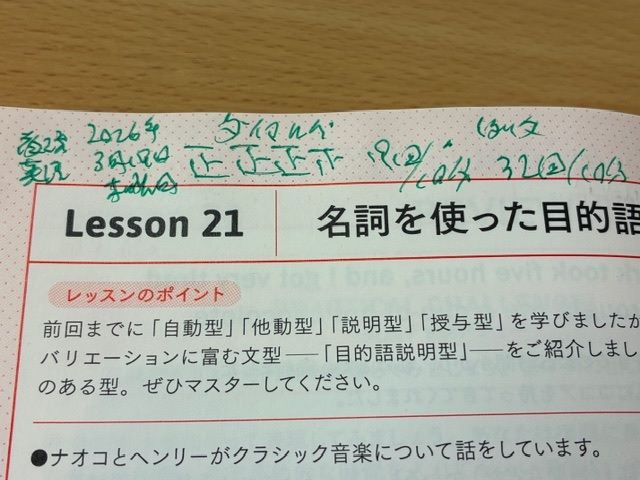 2026年 タイトルド
3月19日 正正正正 19回/10分 32回/10分
Lesson 21 名詞を使った目的語
レッスンのポイント
前回までに「自動型」「他動型」「説明型」「授与型」を学びましたか
バリエーションに富む文型――「目的語説明型」――をご紹介しまし
のある型。ぜひマスターしてください。
●ナオコとヘンリーがクラシック音楽について話をしています。